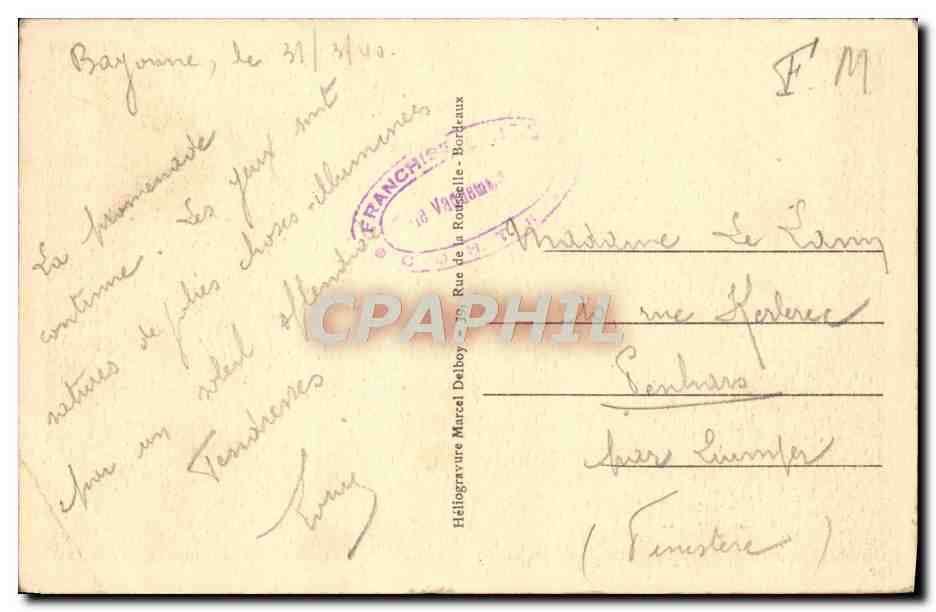 Bayonne, le 31/3/40.
F. M
La promenade
continue. Les yeux sont
saturés de jolies choses illuminées
par un soleil splendide
Tendresses
FRANCHISE
COMTE
CPAPHIL
Héliogravure Marcel Delboy - 39, Rue de la Rousselle - Bordeaux
Madame Le
rue Kerlerec
Penhars
par Quimper
(Finistère)